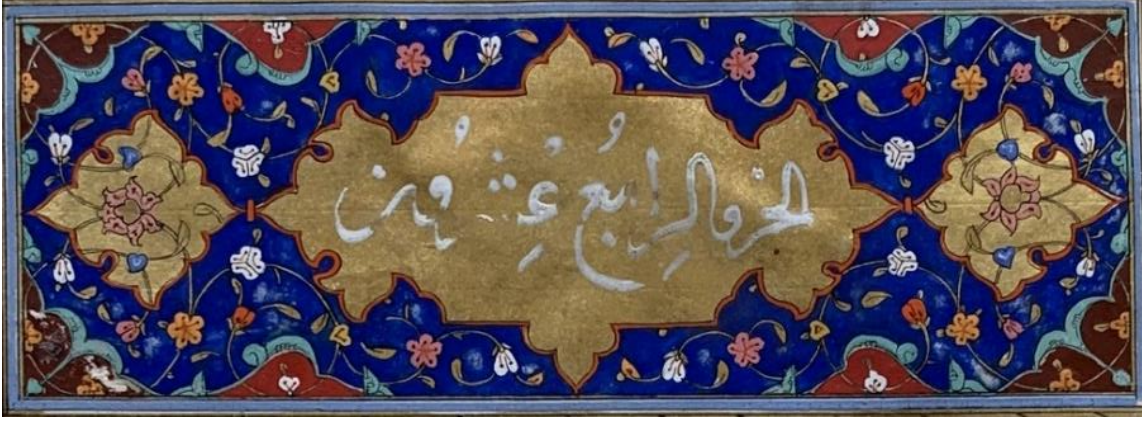 الجزؤ الرابع عشرون